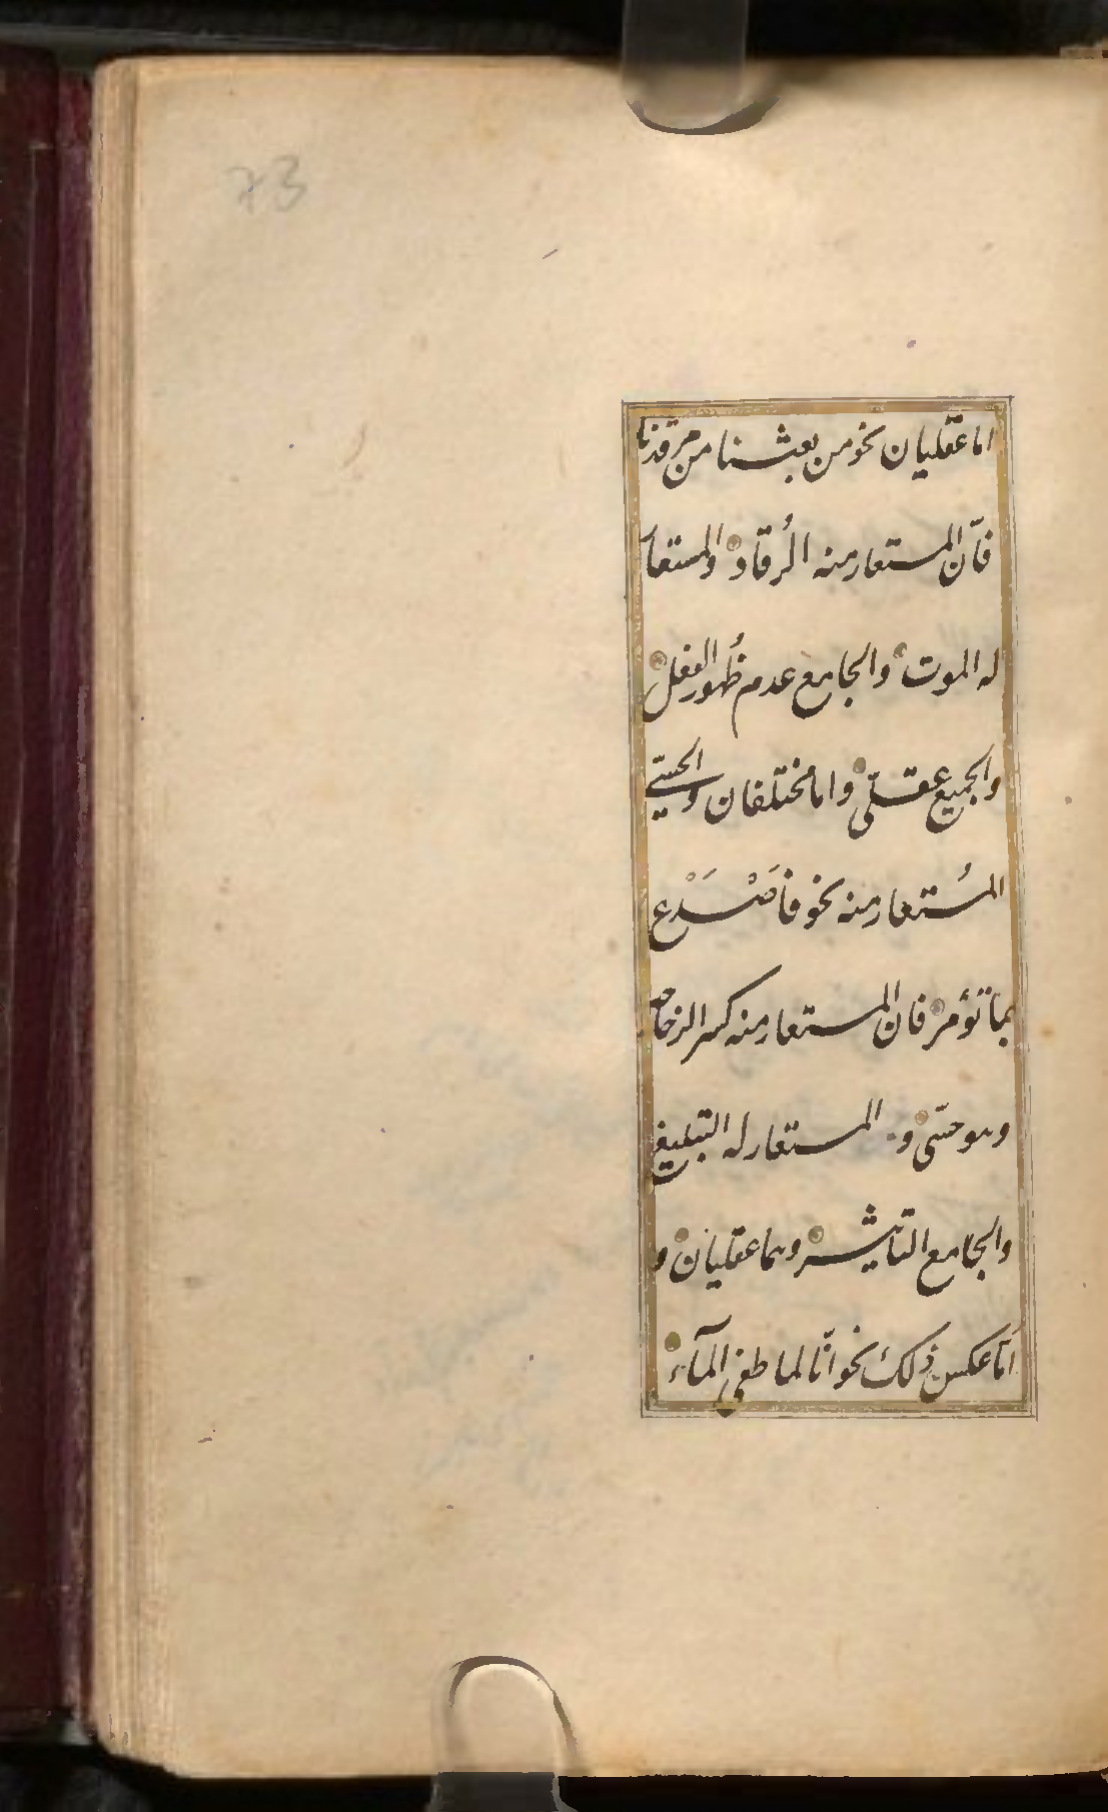 73
اما عقليان نحو من بعثنا من مرقدنا
فانّ المستعار منه الرُقاد والمستعار
له الموت والجامع عدم ظُهور الفعل
والجميع عقلىّ واما مختلفان والحسّى
المُستعار منه نحو فَاصْدَع
بما تؤمر فان المستعار منه كسر الزجاجه
وهو حسّى و المستعار له التبليغ
والجامع التاثير وهما عقليان و
اَمّا عكس ذلك نحو انّا لما طغى المآء